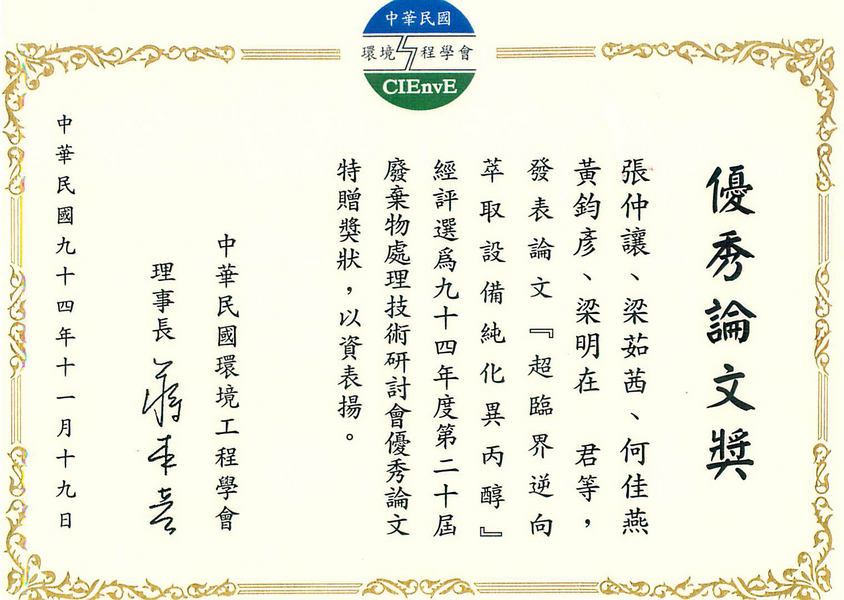 中華民國
環境工程學會
CIEnvE
優秀論文獎
張仲讓、梁茹茜、何佳燕
黃鈞彥、梁明在 君等，
發表論文『超臨界逆向
萃取設備純化異丙醇』
經評選為九十四年度第二十屆
廢棄物處理技術研討會優秀論文
特贈獎狀，以資表揚。
中華民國環境工程學會
理事長
中華民國九十四年十一月十九日